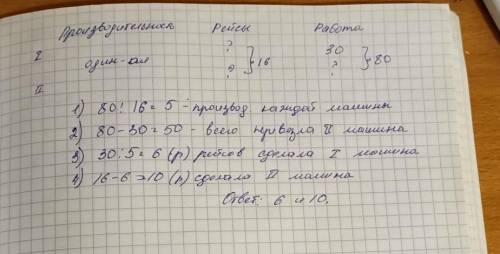 Производительность Рейсы Работа
I ? 30
один-ая } 16 } 80
II ? ?
1) 80 : 16 = 5 - производ каждой машины
2) 80 - 30 = 50 - всего привезла II машина
3) 30 : 5 = 6 (р) рейсов сделала I машина
4) 16 - 6 = 10 (р) сделала II машина
Ответ: 6 и 10.